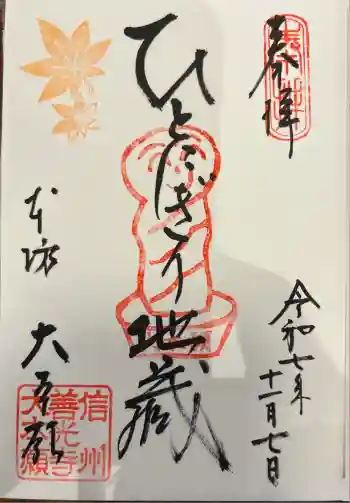 奉拝
ひとにぎり地蔵
令和七年
十一月七日
本坊 大本願
信州
善光寺
大本願